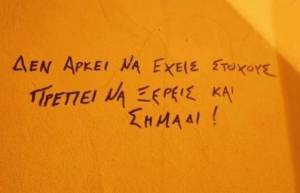 ΔΕΝ ΑΡΚΕΙ ΝΑ ΕΧΕΙΣ ΣΤΟΧΟΥΣ
ΠΡΕΠΕΙ ΝΑ ΞΕΡΕΙΣ ΚΑΙ
ΣΗΜΑΔΙ!